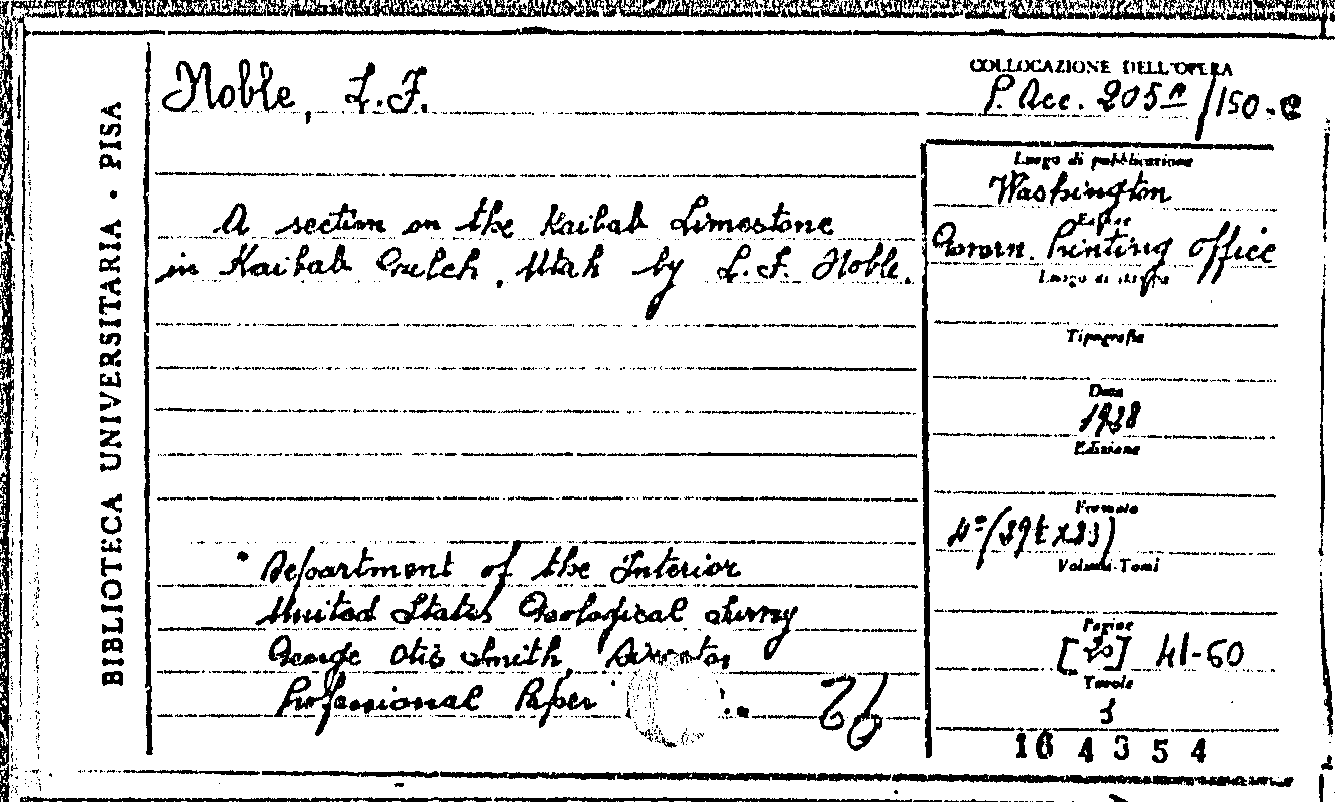 BIBLIOTECA UNIVERSITARIA • PISA
Noble, L.F.
COLLOCAZIONE DELL'OPERA
P. Acc. 205 /150-C
A section on the Kaibab Limestone
in Kaibab Gulch, Utah by L.F. Noble.
Luogo di pubblicazione
Washington
Editore
Govern. Printing Office
Luogo di stampa
Tipografia
Data
1928
Edizione
Formato
4º
Volumi-Tomi
Department of the Interior
United States Geological Survey
George Otis Smith, Director
Professional Paper
Pagine
[20] 41-60
Tavole
1
26
164354